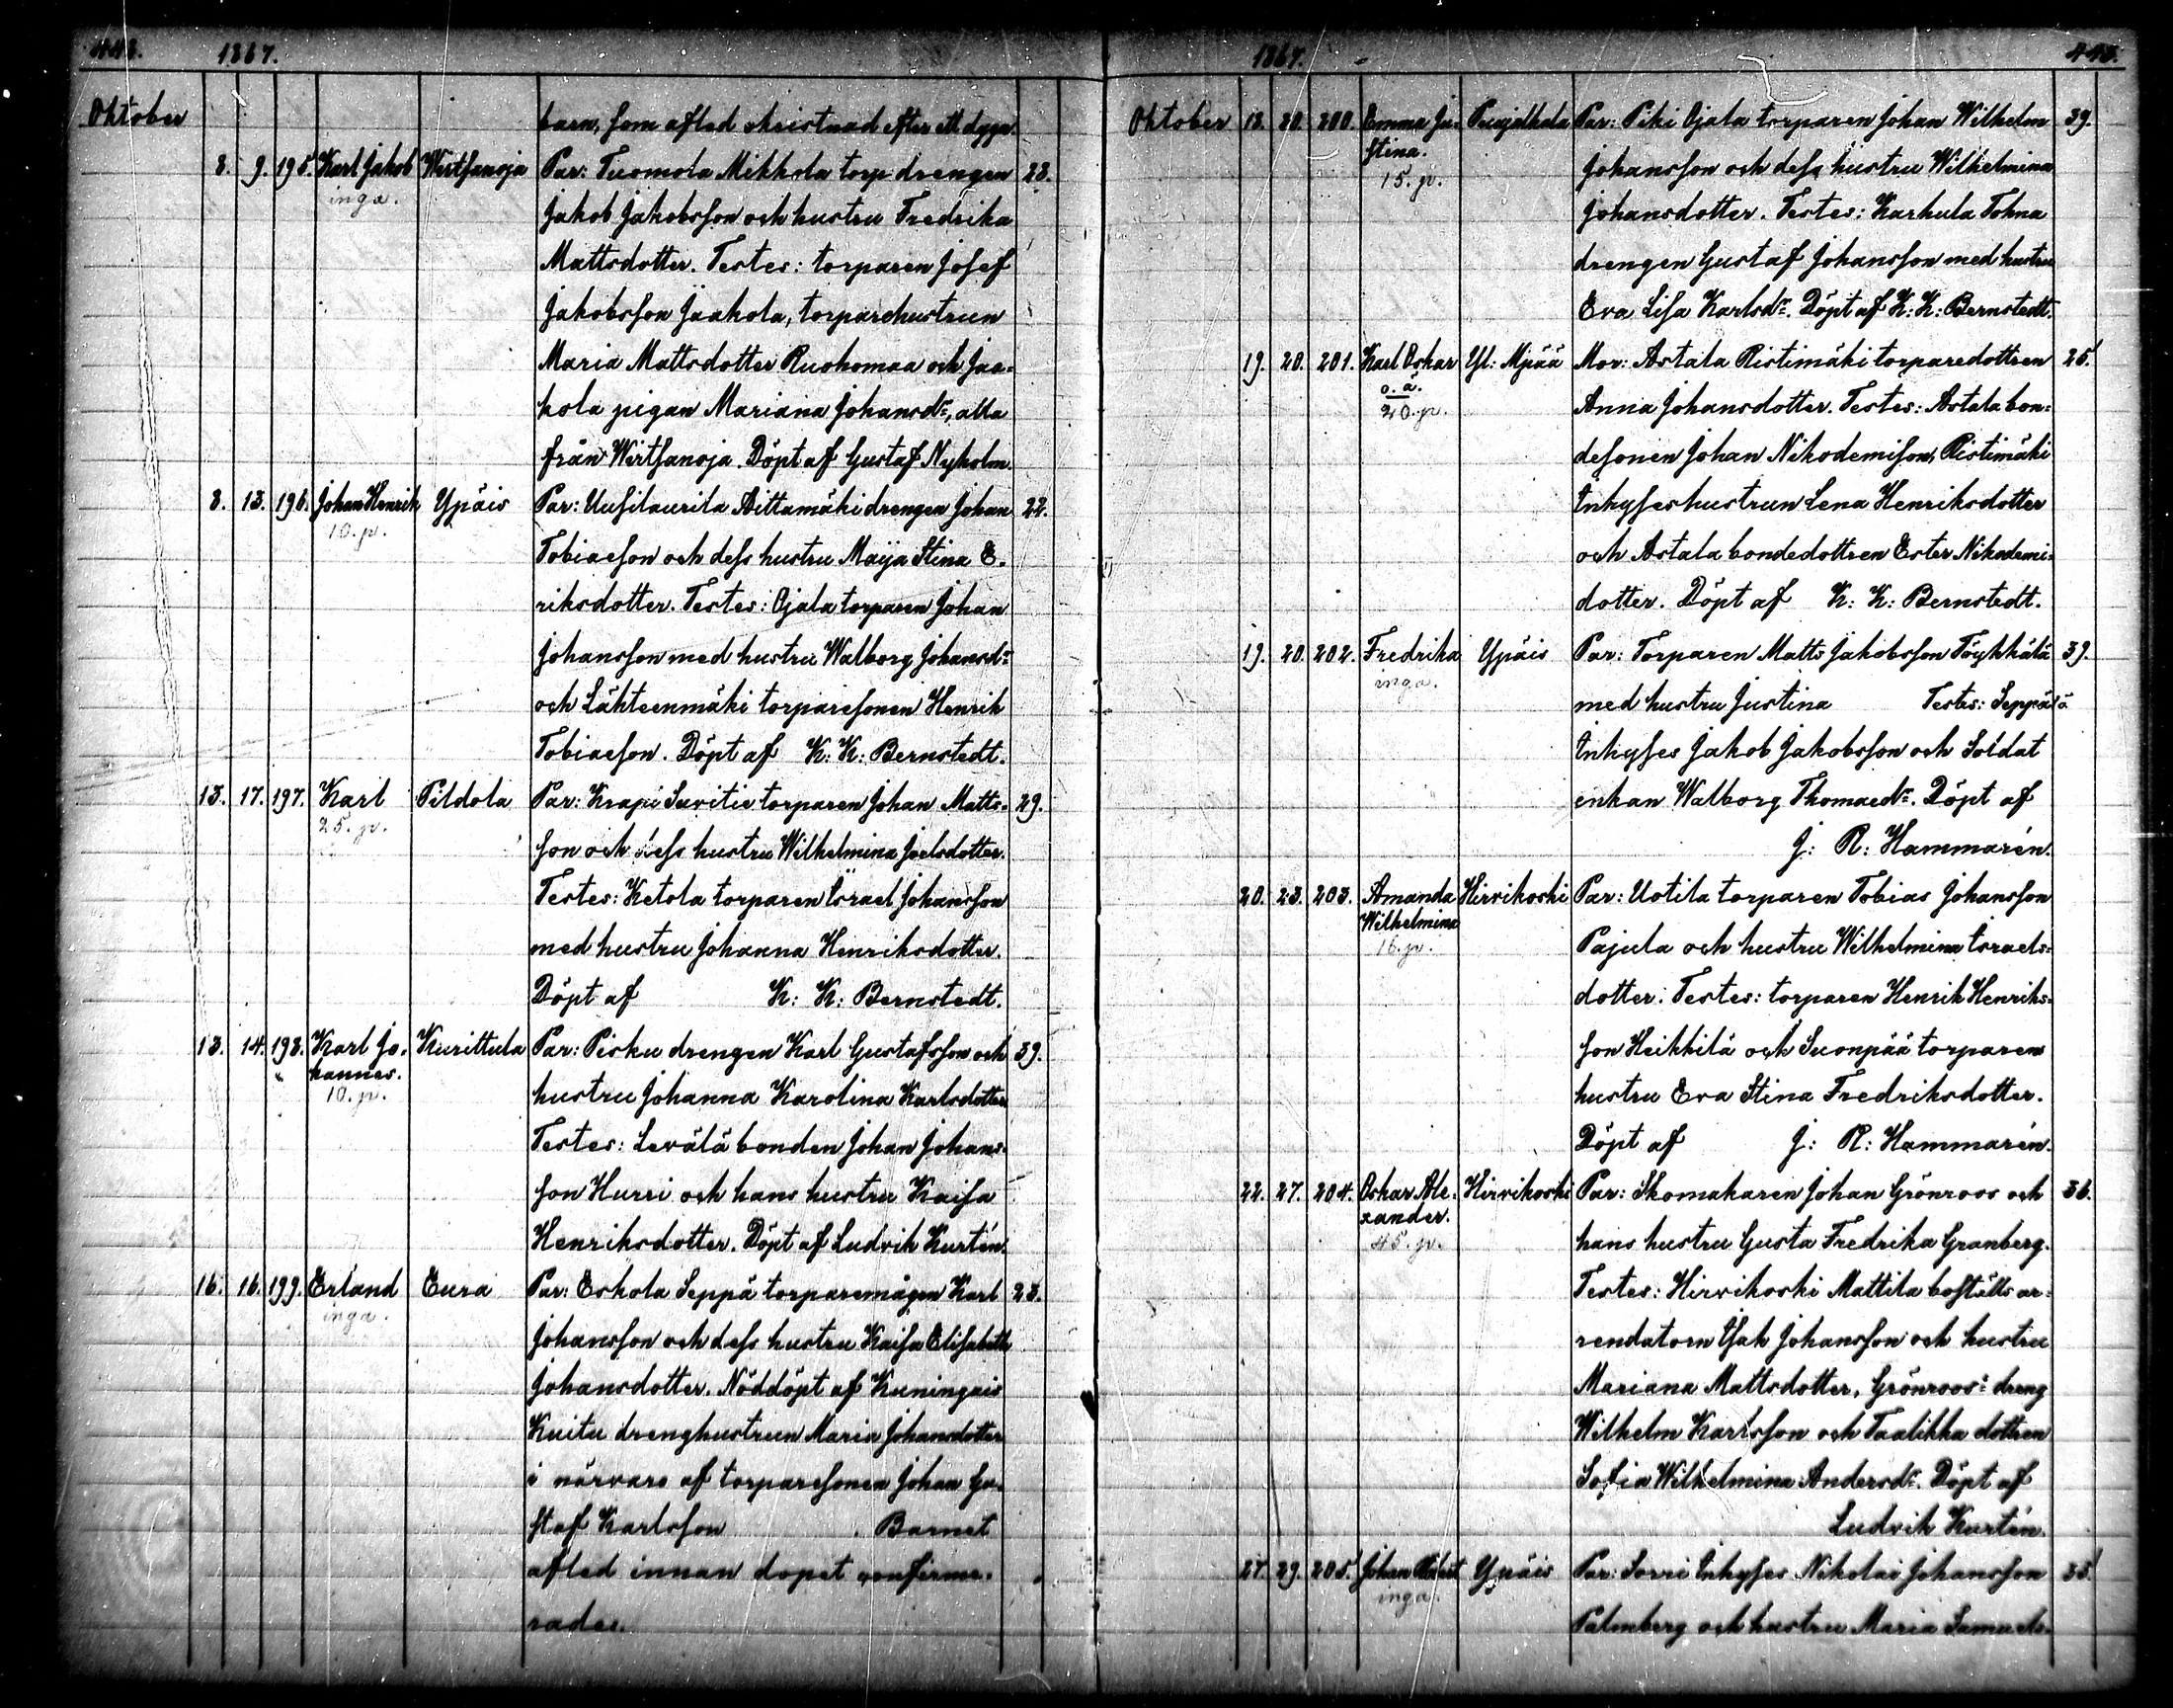 442. 1867.
Oktober barn, som afled ochristnad efter ett dygn.
8. 9. 195. Karl Jakob Wirtsanoja Par: Tuomola Mikkola torp drengen 28.
inga. Jakob Jakobsson och hustru Fredrika
Mattsdotter. Testes: torparen Josef
Jakobsson Jaakola, torparehustrun
Maria Mattsdotter Ruohomaa och Jaa-
kola pigan Mariana Johansdr, alla
från Wirtsanoja. Döpt af Gustaf Nyholm.
8. 13. 196. Johan Henrik Ypäis Par: Uusitaurila Aittamäki drengen Johan 22.
10. p. Tobiaesson och dess hustru Maija Stina E-
riksdotter. Testes: Ojala torparen Johan
Johansson med hustru Walborg Johansdr
och Lähteenmäki torparesonen Henrik
Tobiaeson. Döpt af K: K: Bernstedt.
13. 17. 197. Karl Pildola Par: Krapi Suvitie torparen Johan Matts- 29.
25. p. son och dess hustru Wilhelmina Joelsdotter.
Testes: Ketola torparen Israel Johansson
med hustru Johanna Henriksdotter.
Döpt af K: K: Bernstedt.
13. 14. 198. Karl Jo- Kurittula Par: Pisku drengen Karl Gustafsson och 39.
hannes. hustru Johanna Karolina Karlsdotter
10. p. Testes: Levälä bonden Johan Johans-
son Hurri och hans hustru Kaisa
Henriksdotter. Döpt af Ludvik Kurtén.
16. 16. 199. Erland Eura Par: Eskola Seppä torparemågen Karl 23.
inga. Johansson och dess hustru Kaisa Elisabeth
Johansdotter. Nöddöpt af Kuningais
Kuitu drenghustrun Maria Johansdotter
i närvaro af torparesonen Johan Gu-
staf Karlsson Barnet
afled innan dopet confirme-
rades.
1867. 443.
Oktober 18. 20. 200. Emma Ju- Par: Piki Ojala torparen Johan Wilhelm 39.
stina. Johansson och dess hustru Wilhelmina
15. p. Johansdotter. Testes: Karhula Tohna
drengen Gustaf Johansson med hustru
Eva Lisa Karlsdr. Döpt af K: K: Bernstedt.
19. 20. 201. Karl Oskar Yl: Mpää Mor: Astala Ristimäki torparedottren 25.
o. ä. Anna Johansdotter. Testes: Astala bon-
20. p. desonen Johan Nikodemison, Ristimäki
Inhyseshustrun Lena Henriksdotter
och Astala bondedottren Ester Nikodemi-
dotter. Döpt af K: K: Bernstedt.
19. 20. 202. Fredrika Ypäis Par: Torparen Matts Jakobsson Töykkälä 39.
inga. med hustru Justina Testes: Seppälä
Inhyses Jakob Jakobsson och Soldat
enkan Walborg Thomaedr. Döpt af
J: R: Hammarén.
20. 23. 203. Amanda Hirvikoski Par: Uotila torparen Tobias Johansson
Wilhelmina Pajula och hustru Wilhelmina Israels-
16. p. dotter. Testes: torparen Henrik Henriks-
son Heikkilä och Suonpää torparen
hustru Eva Stina Fredriksdotter.
Döpt af J: R: Hammarén.
22. 27. 204. Oskar Ale- Hirvikoski Par: Skomakaren Johan Grönroos och 36.
xander. hans hustru Gusta Fredrika Granberg.
45. p. Testes: Hirvikoski Mattila boställs ar-
rendatorn Isak Johansson och hustru
Mariana Mattsdotter, Grönroos: dreng
Wilhelm Karlsson och Taalikka dottren
Sofia Wilhelmina Andersdr. Döpt af
Ludvik Kurtén.
27. 29. 205. Johan Ypäis Par: Sorri Inhyses Nikolai Johansson 33.
inga. Palmberg och hustru Maria Samuels-